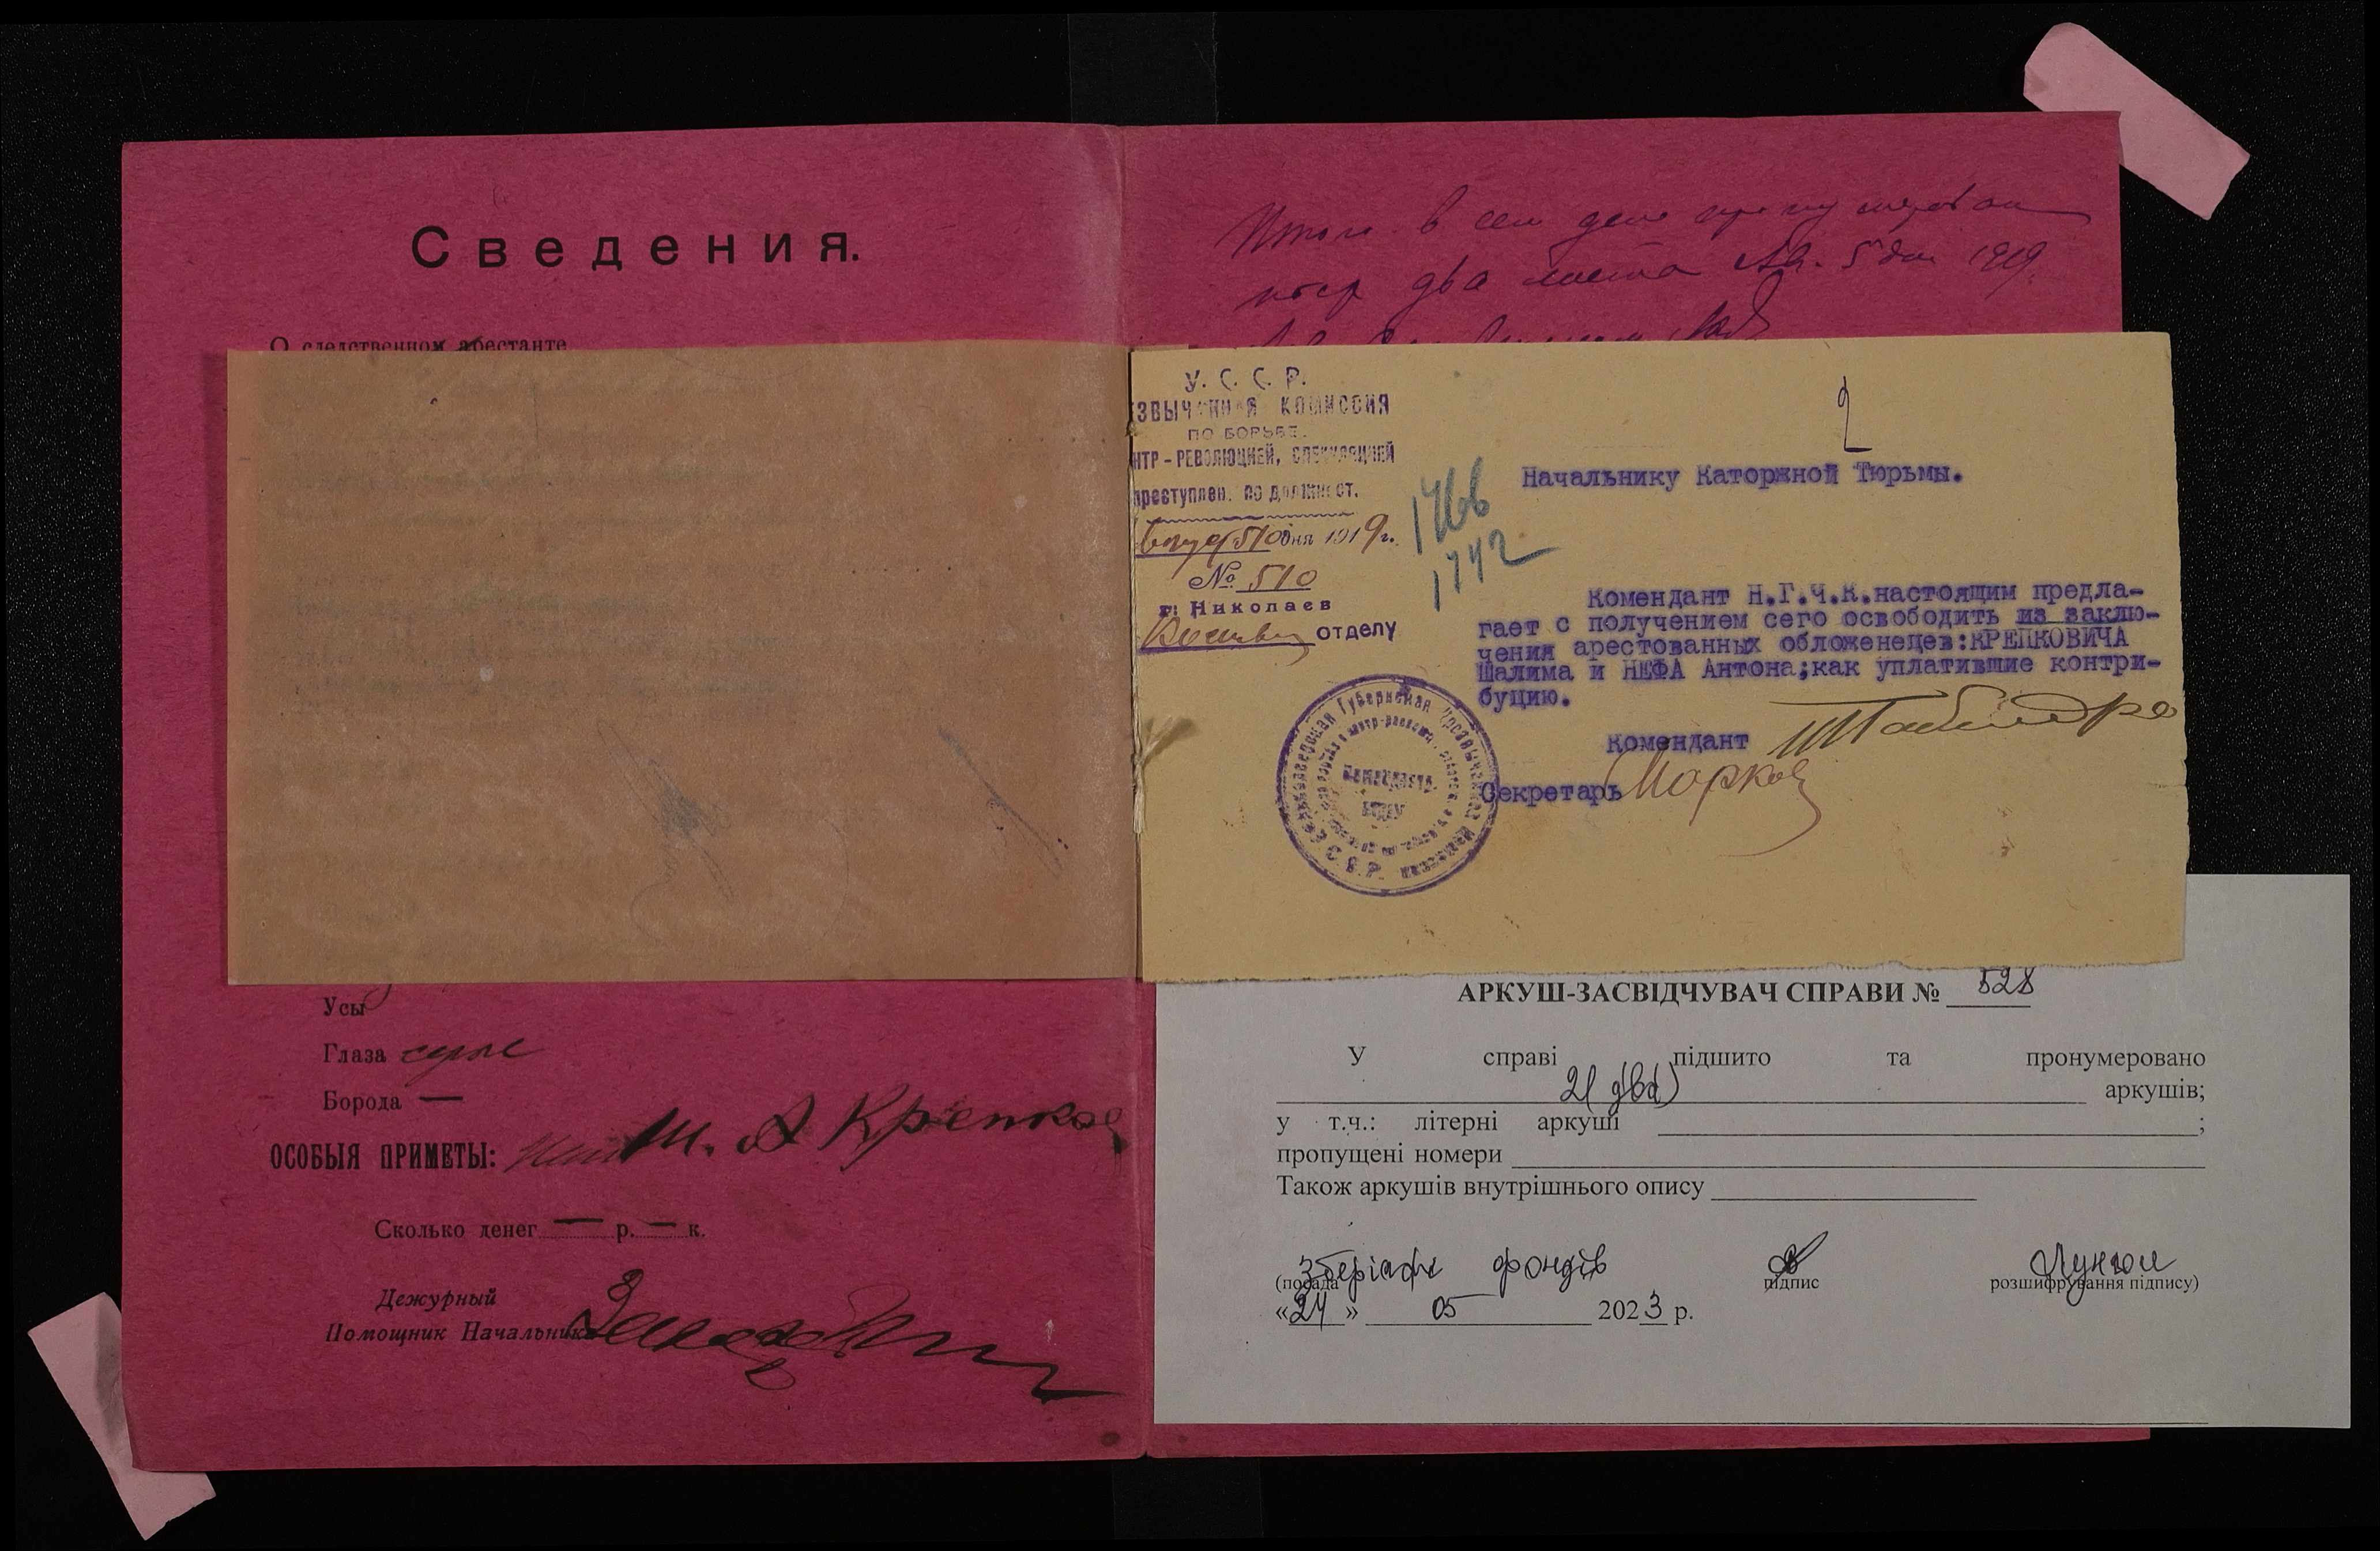 Сведения.
О следственном арестанте
Усы
Глаза серые
Борода —
ОСОБЫЯ ПРИМЕТЫ:
Ш. А Крепков
Сколько денег — р. — к.
Дежурный
Помощник Начальника
Итого в сем деле пронумерован
два листа Ав. 5 дня 1919.
У. С. С. Р.
ЗВЫЧАЙНАЯ КОМИССИЯ
ПО БОРЬБЕ.
НТР-РЕВОЛЮЦИЕЙ, СПЕКУЛЯЦИЕЙ
преступлен. по должност.
5/0 дня 1919 г.
№ 510
г. Николаев
отделу
1766
1742
2
Начальнику Каторжной Тюрьмы.
Комендант Н.Г.Ч.К.настоящим предла-
гает с получением сего освободить из заклю-
чения арестованных обложенецев:КРЕПКОВИЧА
Шалима и НЕФА Антона;как уплатившие контри-
буцию.
Комендант
Секретарь Марков
Губернская Чрезвычайная Комиссия
У.С.С.Р.
АРКУШ-ЗАСВІДЧУВАЧ СПРАВИ № 528
У справі підшито та пронумеровано
2( два) аркушів;
у т.ч.: літерні аркуші ;
пропущені номери
Також аркушів внутрішнього опису
Зберігач фондів
(посада підпис розшифрування підпису)
«24» 05 2023 р.